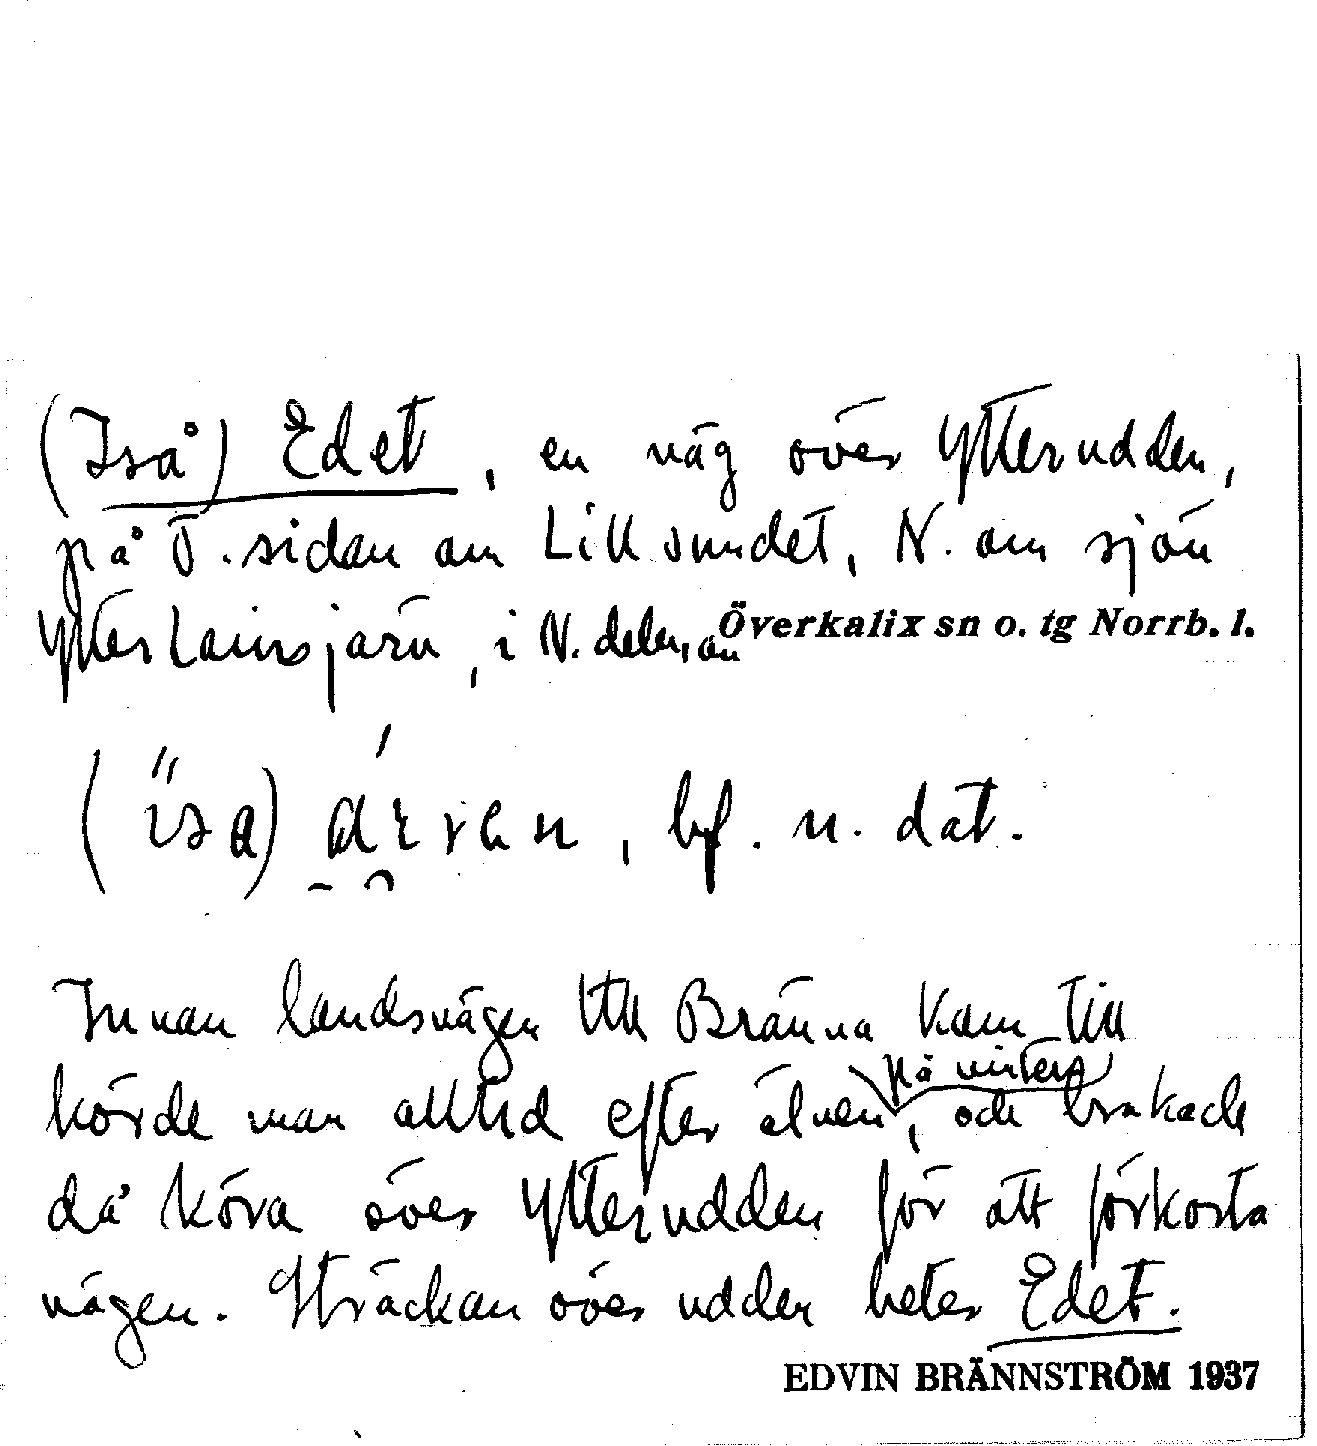 (Iså) Edet, en väg över Ytterudden,
på Ö.sidan om Lillsundet, N. om sjön
Ytterlansjärv, i N. delen, av Överkalix sn o. tg Norrb. l.
bf. n. dat.
Innan landsvägen till Bränna kom till
körde man alltid efter älven på vintern, och brukade
då köra över Ytterudden för att förkorta
vägen. Sträckan över udden heter Edet.
EDVIN BRÄNNSTRÖM 1937